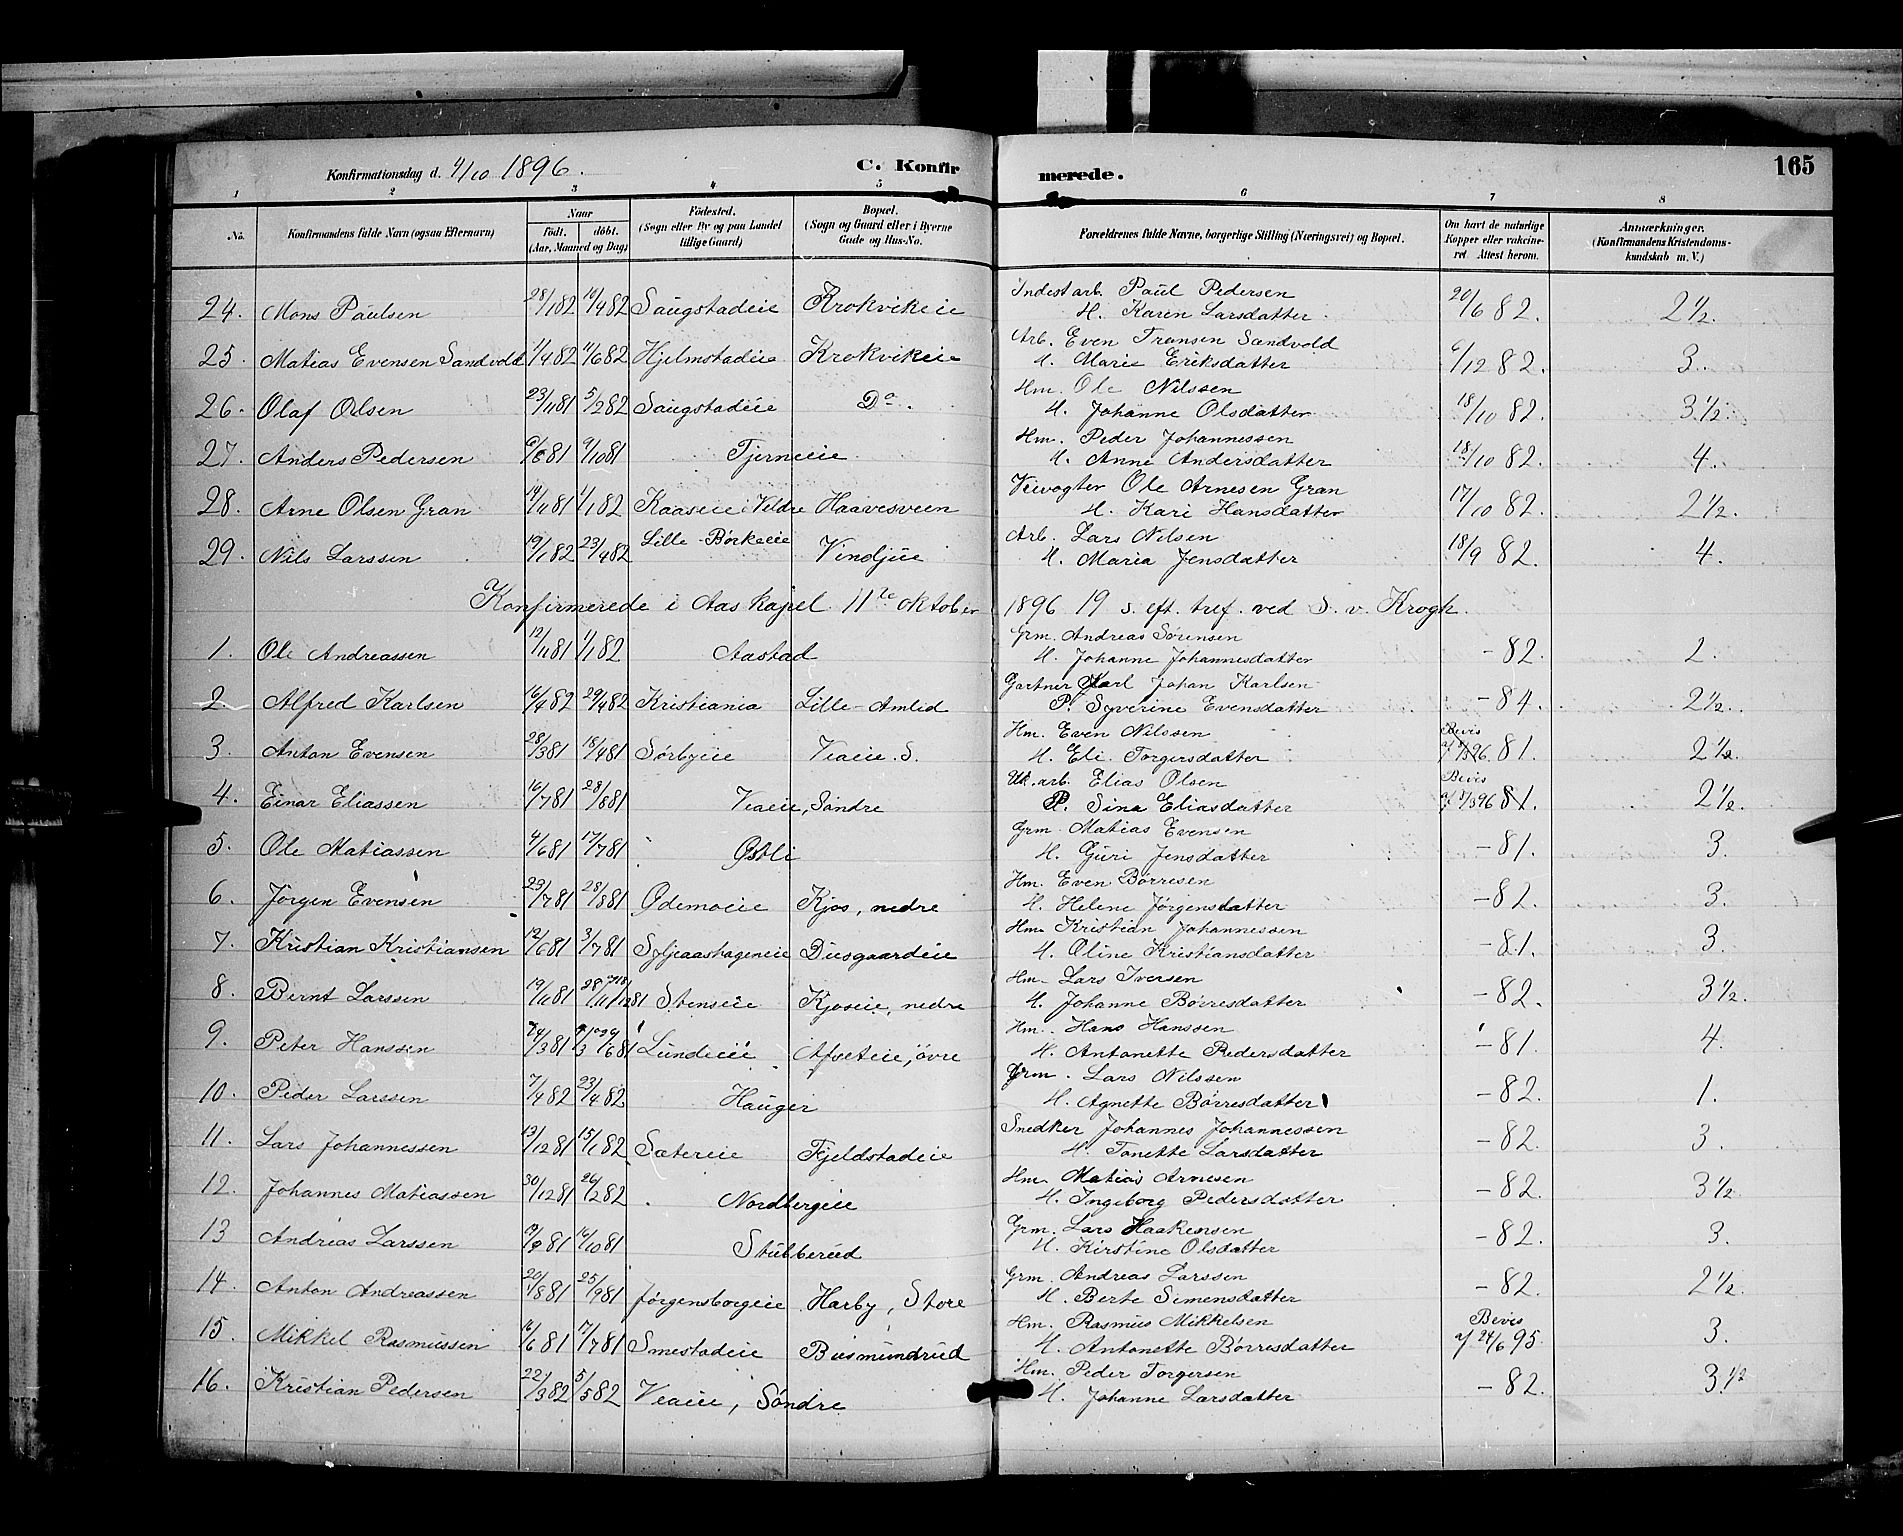 Konfirmationsdag d. 4/10 1896. C. Konfirmerede. 165
1 2 3 4 5 6 7 8
No. Konfirmandens fulde Navn (ogsaa Efternavn) Naar födt. döbt. (Aar, Maaned og Dag) Födested. (Sogn eller By og paa Landet tillige Gaard) Bopæl. (Sogn og Gaard eller i Byerne Gade og Hus-No. Forældrenes fulde Navne, borgerlige Stilling (Næringsvei) og Bopæl. Om havt de naturlige Kopper eller vakcineret. Attest herom. Anmærkninger. (Konfirmandens Kristendomskundskab m. V.)
24. Mons Paulsen 28/1 82 Saugstadeie Krokvikeie Indestarb. Paul Pedersen H. Karen Larsdatter 20/6 82. 2 1/2.
25. Matias Evensen Sandvold 1/4 82 11/6 82 Hjelmstadeie Krokvikeie Arb. Even Transen Sandvold H. Marie Eriksdatter 6/12 82. 3.
26. Olaf Olsen 23/11 81 5/2 82 Saugstadeie Do. Hm. Ole Nilssen H. Johanne Olsdatter 18/10 82. 3 1/2.
27. Anders Pedersen 9/10 81 Tjerneie Hm. Peder Johannessen H. Anne Andersdatter 18/10 82. 4.
28. Arne Olsen Gran 14/11 81 1/1 82 Kaaseie i Veldre Haavesveen Veivogter Ole Arnesen Gran H. Kari Hansdatter 17/10 82. 2 1/2.
29. Nils Larssen 19/1 82 23/4 82 Lille-Börkeeie Vindjue Arb. Lars Nilsen H. Maria Jensdatter 18/9 82. 4.
Konfirmerede i Aas kapel 11te oktober 1896 19 s. eft. tref. ved S. v. Krogh.
1. Ole Andreassen 12/11 81 1/1 82 Aastad Grm. Andreas Sörensen H. Johanne Johannesdatter - 82. 2.
2 Alfred Karlsen 16/4 82 29/4 82 Kristiania Lille-Amlid Gartner Karl Johan Karlsen P. Syverine Evensdatter - 84. 2 1/2.
3. Anton Evensen 28/3 81 18/4 81 Sörbyeie Veaeie. S. Hm. Even Nilssen H. Eli Torgersdatter Bevis 81. 2 1/2.
4. Einar Eliassen 16/7 81 28/8 81 Veaeie, Söndre arb. Elias Olsen P. Sina Eliasdatter Bevis af 8/3 96 81. 2 1/2.
5. Ole Matiassen 4/6 81 17/7 81 Östli Grm. Matias Evensen H. Guri Jensdatter - 81. 3.
6. Jörgen Evensen 23/7 81 28/8 81 Ödemoeie Kjos, nedre Hm. Even Börresen H. Helene Jörgensdatter - 82. 3.
7. Kristian Kristiansen 12/6 81 3/7 81 Syljeaashageneie Diesgaardeie Hm. Kristian Johannessen H. Oline Kristiansdatter - 81. 3.
8. Bernt Larssen 19/11 81 Stenseie Kjoseie, nedre Hm. Lars Iversen H. Johanne Börresdatter - 82. 3 1/2.
9. Peter Hanssen 24/3 81 Lundeeie Afseteie, övre Hm. Hans Hanssen H. Antonette Pedersdatter - 81. 4.
10. Peder Larssen 7/4 82 23/4 82 Hauger Grm. Lars Nilssen H. Agnette Börresdatter - 82. 1.
11. Lars Johannessen 13/12 81 15/1 82 Sætereie Fjeldstadeie Snedker Johannes Johannessen H. Tonette Larsdatter - 82. 3.
12. Johannes Matiassen 30/12 81 26/2 82 Nordbergeie Hm. Matias Arnesen H. Ingeborg Pedersdatter - 82. 3 1/2
13 Andreas Larssen 9/9 81 16/10 81 Stubberud Grm. Lars Haakensen H. Kirstine Olsdatter - 82. 3.
14. Anton Andreassen 20/8 81 25/9 81 Jörgensborgeie Harby, Store Grm. Andreas Larssen H. Berte Simensdatter - 82. 2 1/2.
15. Mikkel Rasmussen 16/6 81 17/7 81 Smestadeie Busmundrud Hm. Rasmus Mikkelsen H. Antonette Börresdatter Bevis af 24/6 95. 3.
16. Kristian Pedersen 22/3 82 5/5 82 Veaeie, Söndre Hm. Peder Torgersen H. Johanne Larsdatter - 82. 3 1/2